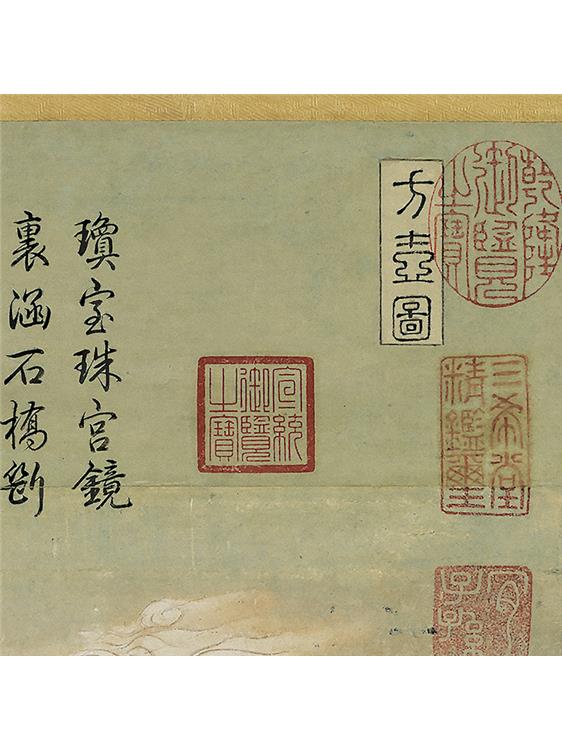 乾隆
御覽
之寶
三希堂
精鑑璽
宜
子孫
方壺圖
宣統
御覽
之寶
瓊室珠宮鏡
裏涵石橋斷